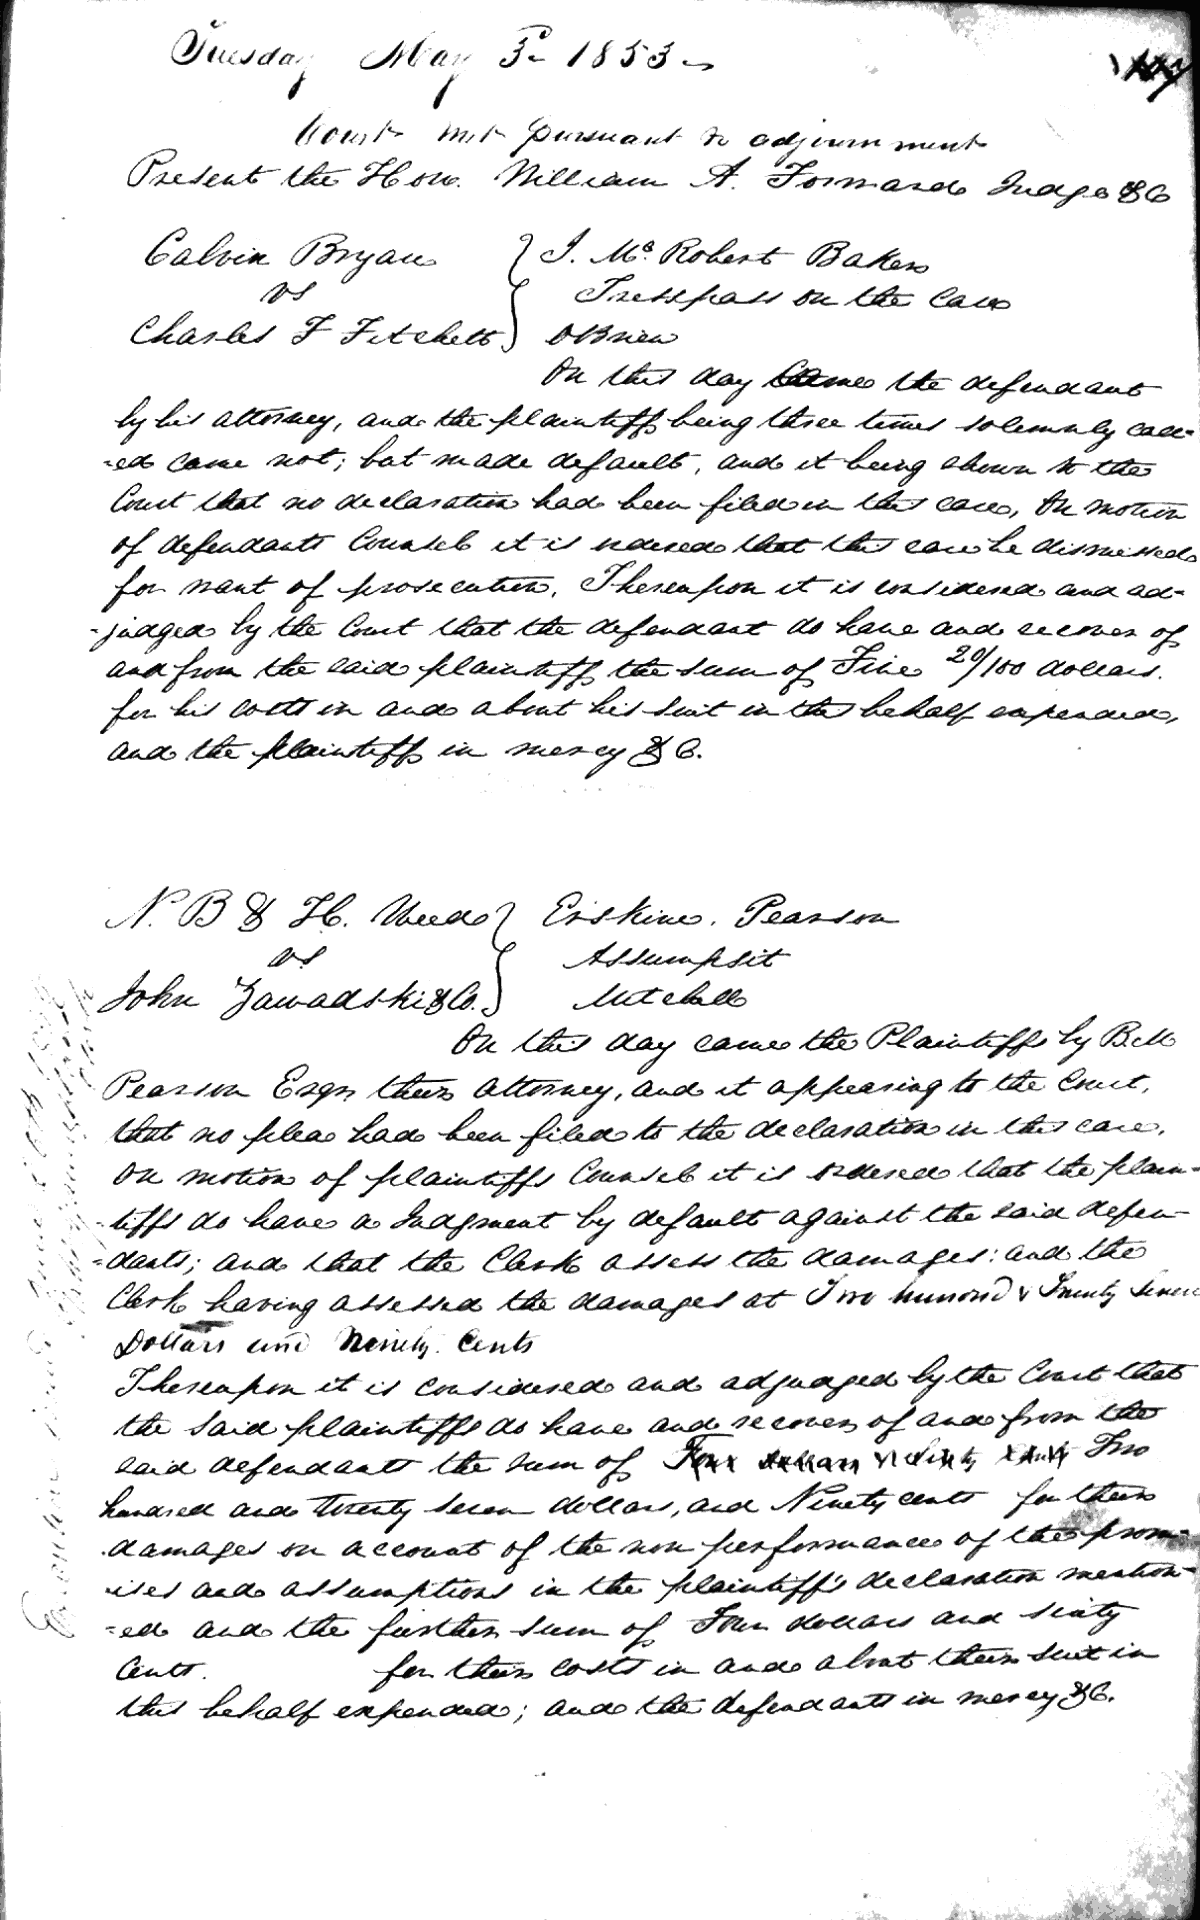 Tuesday May 3d 1853
Court met pursuant to adjournment
Present the Hon. William A. Forward Judge &C
Calvin Bryan } J. Mc. Robert Baker
vs Tresspass on the Case
Charles F Fitchett } OBrien
On this day came the defendant
by his attorney, and the plaintiff being three times solemnly call-
-ed came not; but made default, and it being shown to the
Court that no declaration had been filed in this case, On motion
of defendants Counsel it is ordered that this case be dismissed
for want of prosecution. Thereupon it is considered and ad-
-judged by the Court that the defendant do have and recover of
and from the said plaintiff the sum of Five 20/100 dollars.
for his costs in and about his suit in this behalf expended,
and the plaintiff in mercy &C.
N. B & H. Weed } Erskine. Pearson
vs Assumpsit
John Zawadski & Co. } Mitchell
On this day came the Plaintiffs by
Pearson Esqr their attorney, and it appearing to the Court,
that no plea had been filed to the declaration in this case,
On motion of plaintiffs Counsel it is ordered that the plain-
-tiffs do have a Judgment by default against the said defen-
-dants; and that the Clerk assess the damages: and the
Clerk having assessed the damages at Two hundred & Twenty Seven
Dollars and Ninety Cents
Thereupon it is considered and adjudged by the Court that
the said plaintiffs do have and recover of and from the
said defendants the sum of Four dollars & Sixty Cents Two
hundred and twenty seven dollars, and Ninety cents for their
damages on account of the non performance of the prom-
ises and assumptions in the plaintiff's declaration mention-
-ed and the further sum of Four dollars and sixty
Cents. for their costs in and about their suit in
this behalf expended; and the defendants in mercy &C.